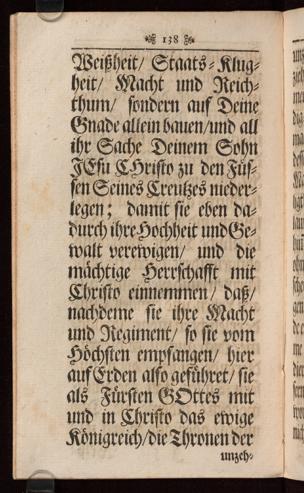 138
Weißheit/ Staats-Klug-
heit/ Macht und Reich-
thum/ sondern auf Deine
Gnade allein bauen/und all
ihr Sache Deinem Sohn
JEsu CHristo zu den Füs-
sen Seines Creutzes nieder-
legen; damit sie eben da-
durch ihre Hochheit und Ge-
walt verewigen/ und die
mächtige Herrschafft mit
Christo einnemmen/ daß/
nachdeme sie ihre Macht
und Regiment/ so sie vom
Höchsten empfangen/ hier
auf Erden also geführet/ sie
als Fürsten GOttes mit
und in Christo das ewige
Königreich/die Thronen der
unzeh-